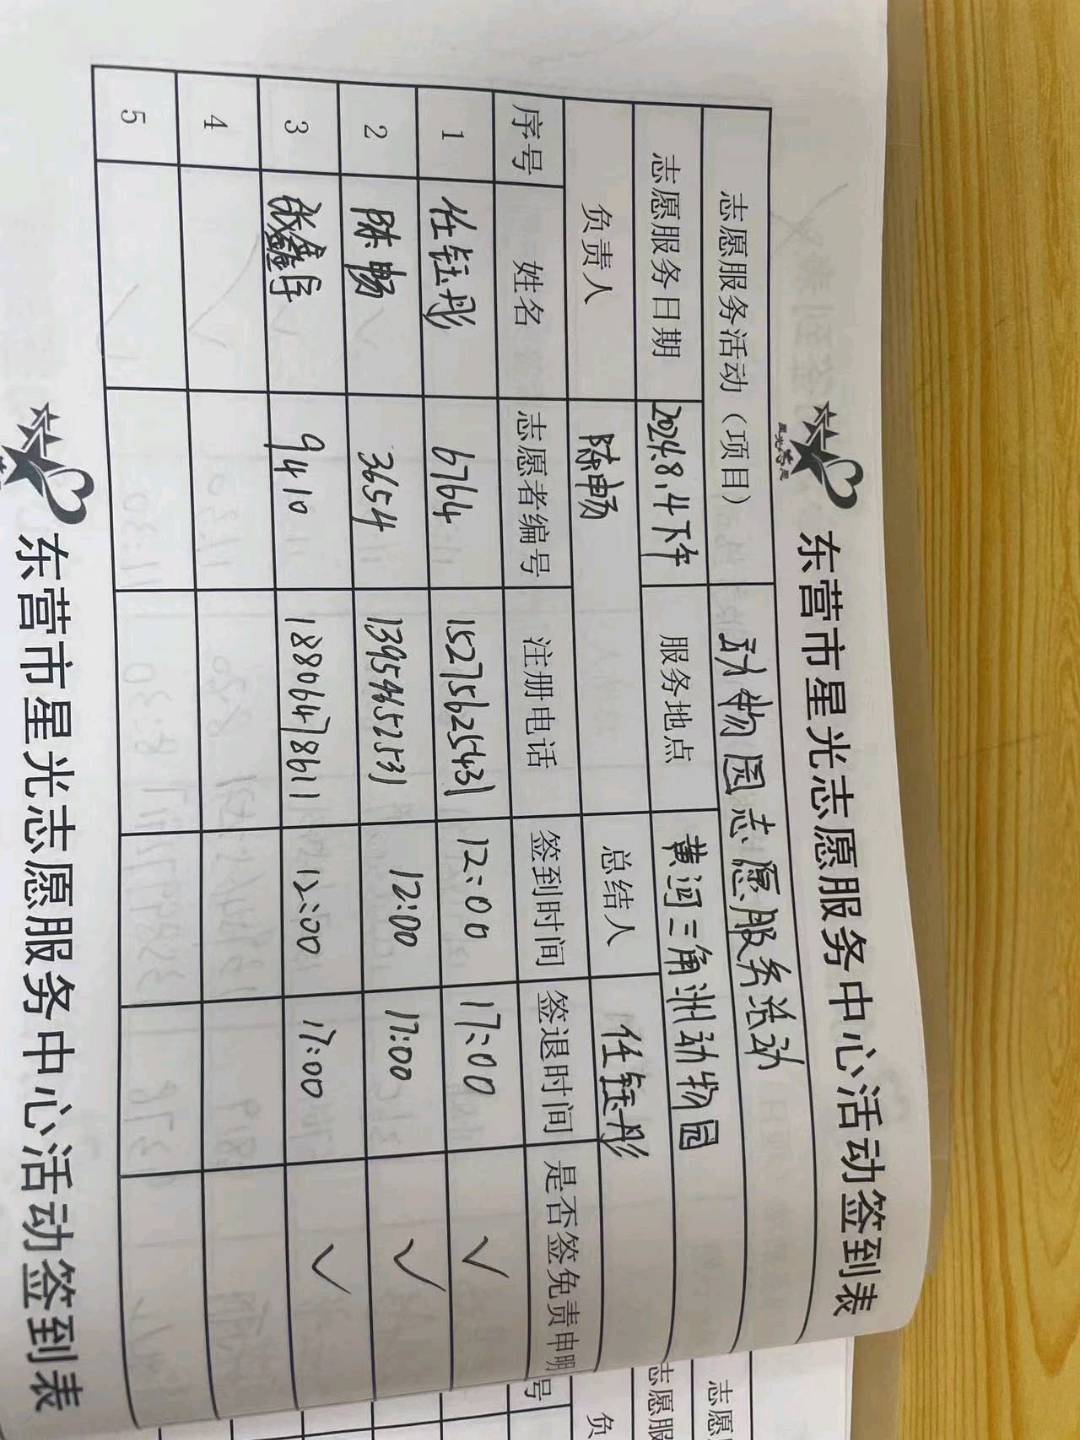 星光志愿
东营市星光志愿服务中心活动签到表
志愿服务活动（项目） 动物园志愿服务活动
志愿服务日期 2024.8.4下午 服务地点 黄河三角洲动物园
负责人 陈畅 总结人 任钰彤
序号 姓名 志愿者编号 注册电话 签到时间 签退时间 是否签免责申明
1 任钰彤 6764 15275625431 12:00 17:00 ✓
2 陈畅 3654 13954652531 12:00 17:00 ✓
3 张鑫宇 9410 18806478611 12:00 17:00 ✓
4
5
东营市星光志愿服务中心活动签到表
志愿
志愿服
负
号